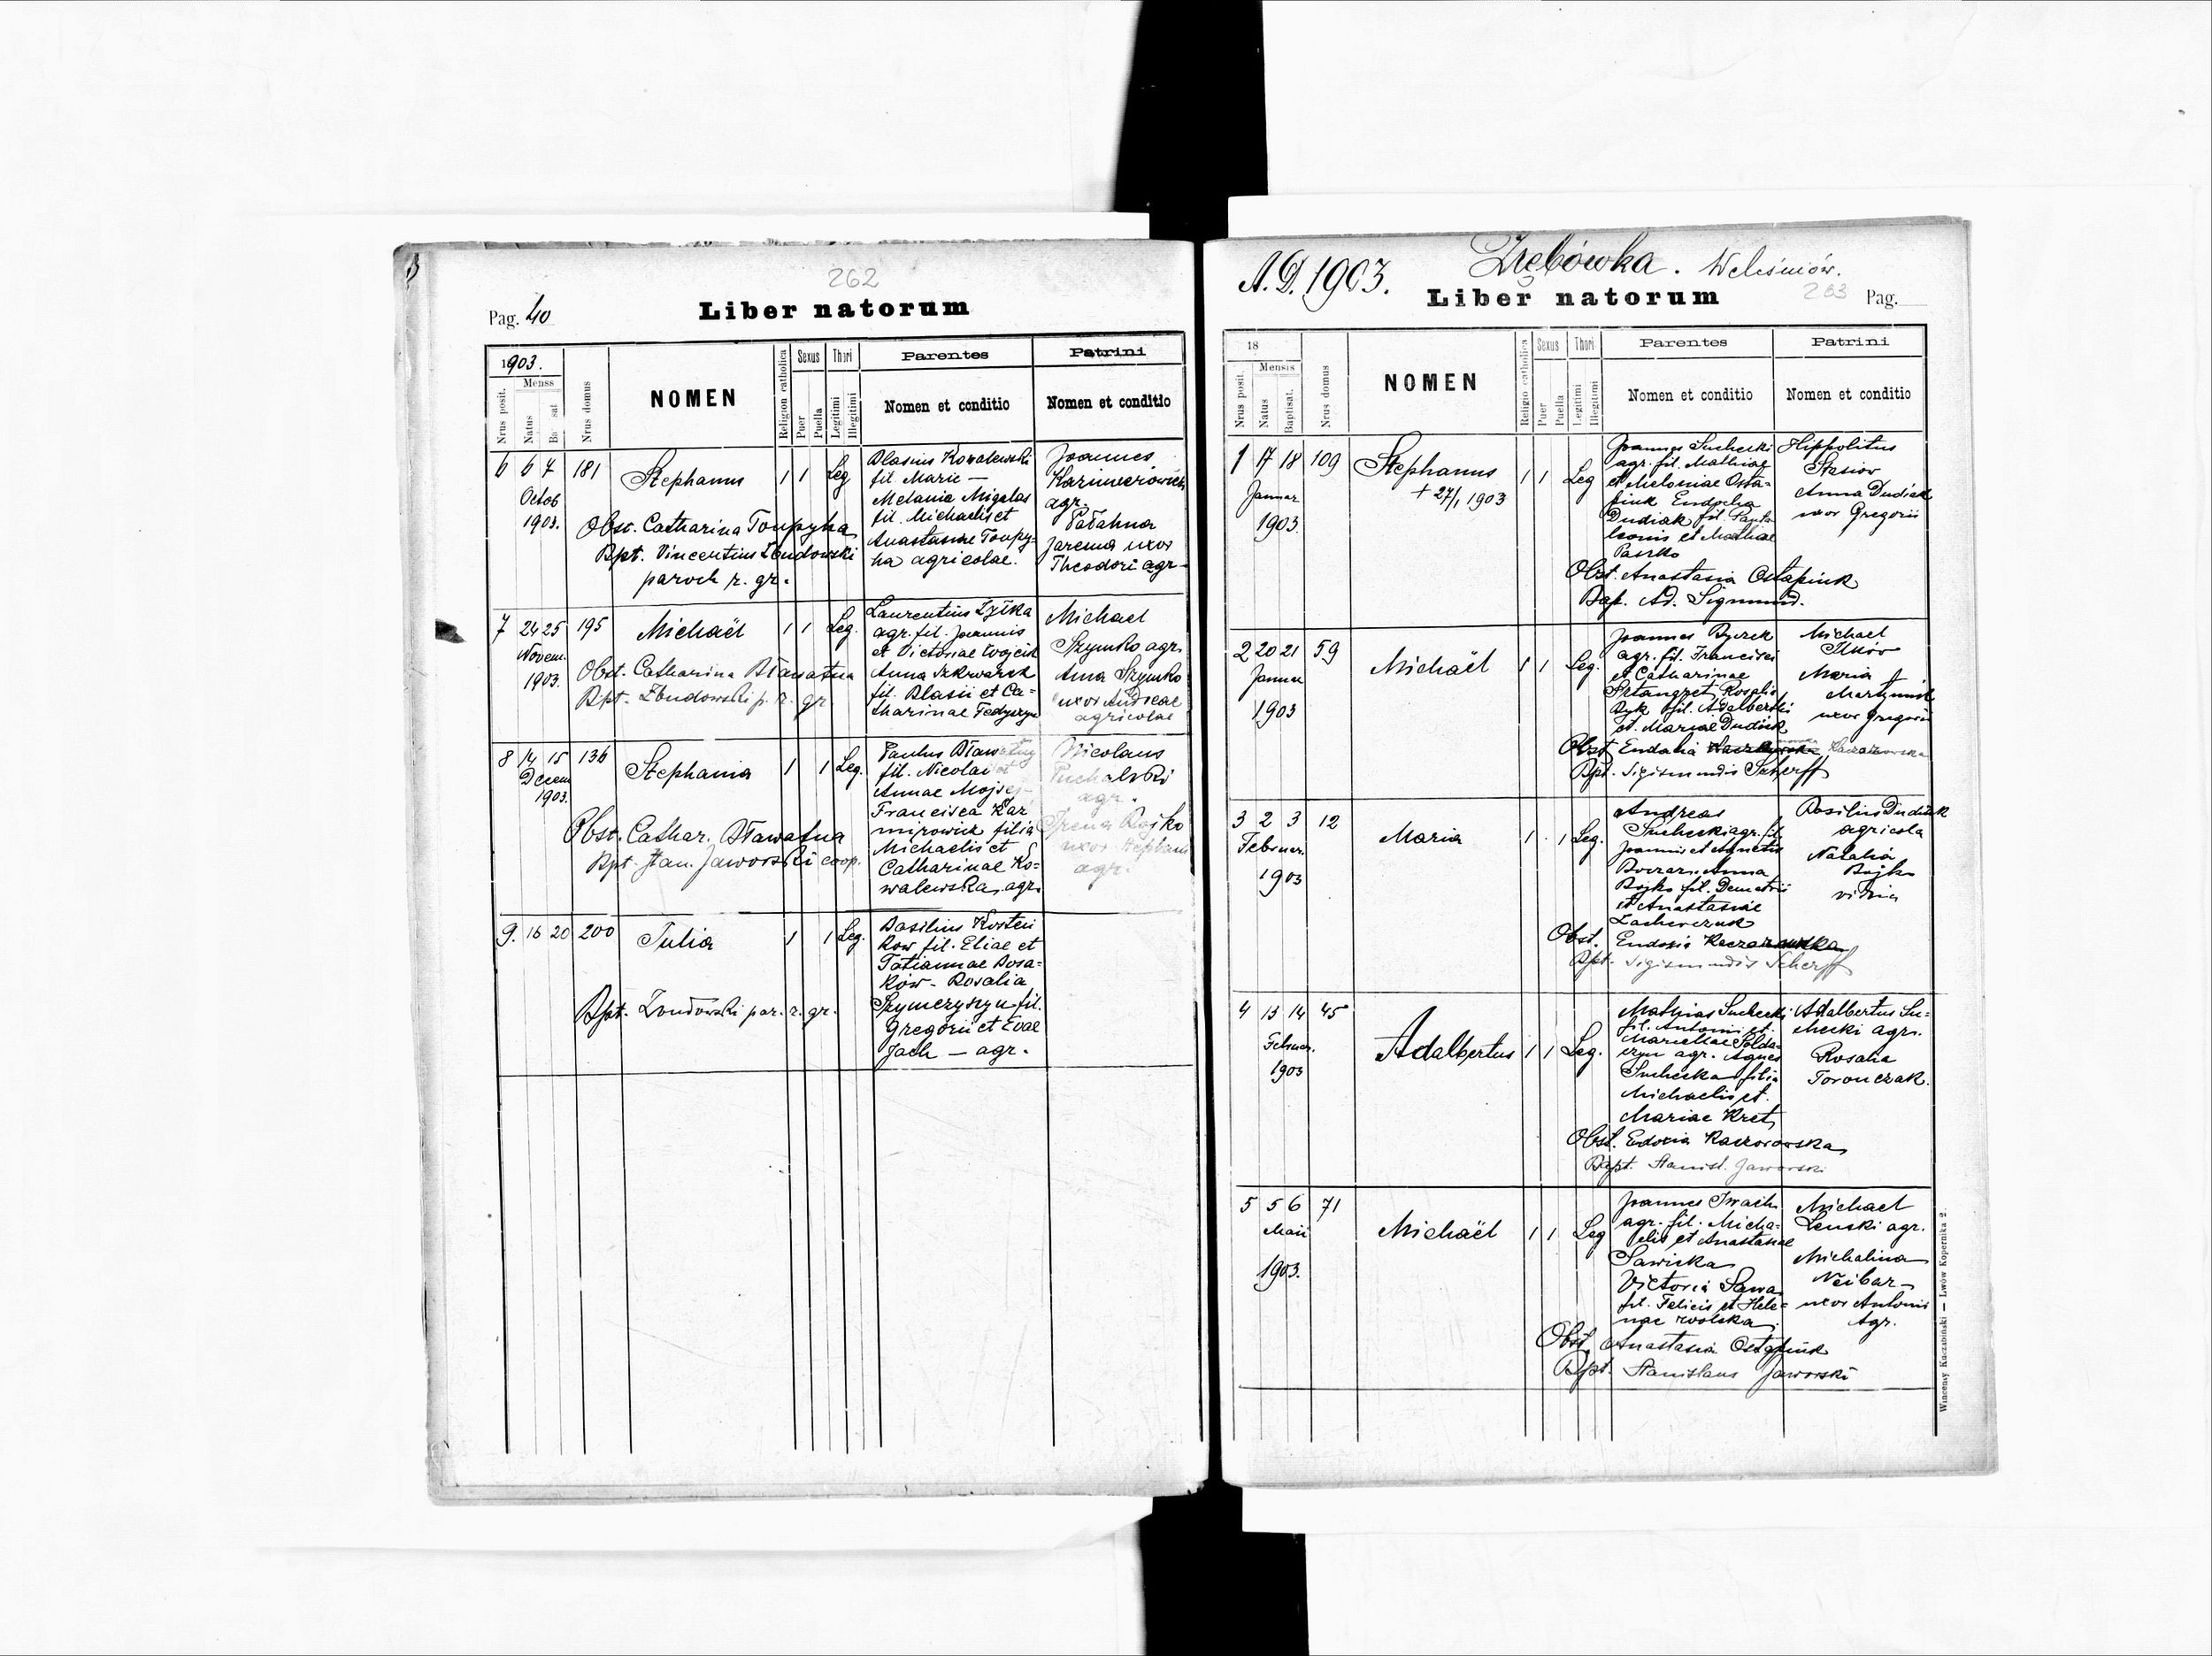 262
Pag. 40
Liber natorum
1903.
Nrus posit.
Menss
Natus
Ba sat
Nrus domus
NOMEN
Religion catholica
Sexus
Puer
Puella
Thori
Legitimi
Illegitimi
Parentes
Nomen et conditio
Patrini
Nomen et conditio
6 6 7 181
Octob
1903.
Stephanus
1 1 Leg
Blasius Kowalewski
fil. Marie —
Melania Migalas
fil. Michaelis et
Anastasiae Toupy-
ha agricolae.
Joannes
Kazimierowicz
agr.
Pałahna
Jarema uxor
Theodori agr-
Obst. Catharina Toupyha
Bpt. Vincentius Zoudowski
paroch r. gr.
7 24 25 195
Novem.
1903.
Michaël
1 1 Leg.
Laurentius Zyłka
agr. fil. Joannis
et Victoriae Wojcik
Anna Szkwarek
fil. Blasii et Ca-
tharinae Fedyszyn
Michael
Szymko agr.
Anna Szymko
uxor Andreae
agricolae
Obst. Catharina Dławatna
Bpt. Zoudowski p. r. gr
8 14 15 136
Decem
1903.
Stephania
1 1 Leg.
Paulus Dławatny
fil. Nicolai et
Annae Mojsej-
Francisca Kaz
mirowicz filia
Michaelis et
Catharinae Ko-
walewska, agr.
Nicolaus
Puchalski
agr.
Irena Bojko
uxor Stephani
agr.
Obst. Cathar. Dławatna
Bpt. Stan. Jaworski coop.
9. 16 20 200
Julia
1 1 Leg.
Basilius Kosteń
Kow fil. Eliae et
Tatiannae Kosa-
ków - Rosalia
Szymczyszyn fil.
Gregorii et Evae
Jach — agr.
Bpt. Zoudowski par. r. gr.
A.D. 1903.
Zrębówka. Weleśniów.
263
Liber natorum
Pag.
18
Nrus posit.
Mensis
Natus
Baptisat.
Nrus domus
NOMEN
Religio catholica
Sexus
Puer
Puella
Thori
Legitimi
Illegitimi
Parentes
Nomen et conditio
Patrini
Nomen et conditio
1 17 18 109
Januar
1903.
Stephanus
+ 27/1 1903
1 1 Leg
Joannes Suchecki
agr. fil. Mathiae
et Meloniae Osta-
piuk Eudochia
Dudiak fil. Panta
leonis et Mathiae
Paszko
Hippolitus
Stasiów
Anna Dudiak
uxor Gregorii
Obst. Anastasia Ostapiuk
Bap. Ad. Sigmund.
2 20 21 59
Januar
1903
Michaël
1 1 Leg.
Joannes Byczek
agr. fil. Francisci
et Catharinae
Sztangret Rosalia
Byk fil. Adalberti
et Mariae Dudiak
Michael
Ilków
Maria
Martyniuk
uxor Gregorii
Obst. Kaczorowska
Bpt. Sigismundis Scherff
3 2 3 12
Februar.
1903
Maria
1 1 Leg.
Andreas
Suchecki agr. fil
Joannis et Agnetis
Boczar Anna
Bojko fil. Demetrii
et Anastasiae
Zacharczuk
Basilius Dudiak
agricola
Natalia
Bojko
vidua
Obst. Eudoxia Kaczorowska
Bpt. Sigismundis Scherff
4 13 14 45
Februar.
1903
Adalbertus
1 1 Leg.
Mathias Suchecki
fil. Antonii et
Mariannae Solda-
czyn agr. Agnes
Suchecka filia
Michaelis et
Mariae Kret
Adalbertus Su-
checki agr.
Rosalia
Toronczak.
Obst. Edoxia Kaczorowska
Bapt. Stanisl. Jaworski
5 5 6 71
Maii
1903.
Michaël
1 1 Leg
Joannes Iwach
agr. fil. Micha-
elis et Anastasiae
Sawicka
Victoria Sawa
fil. Felicis et Hele-
nae Wolska
Michael
Lenski agr.
Michalina
Neibar
uxor Antonii
Agr.
Obst. Anastasia Ostapiuk
Bapt. Stanislaus Jaworski
Wincenty Kuczabiński — Lwów Kopernika 2.